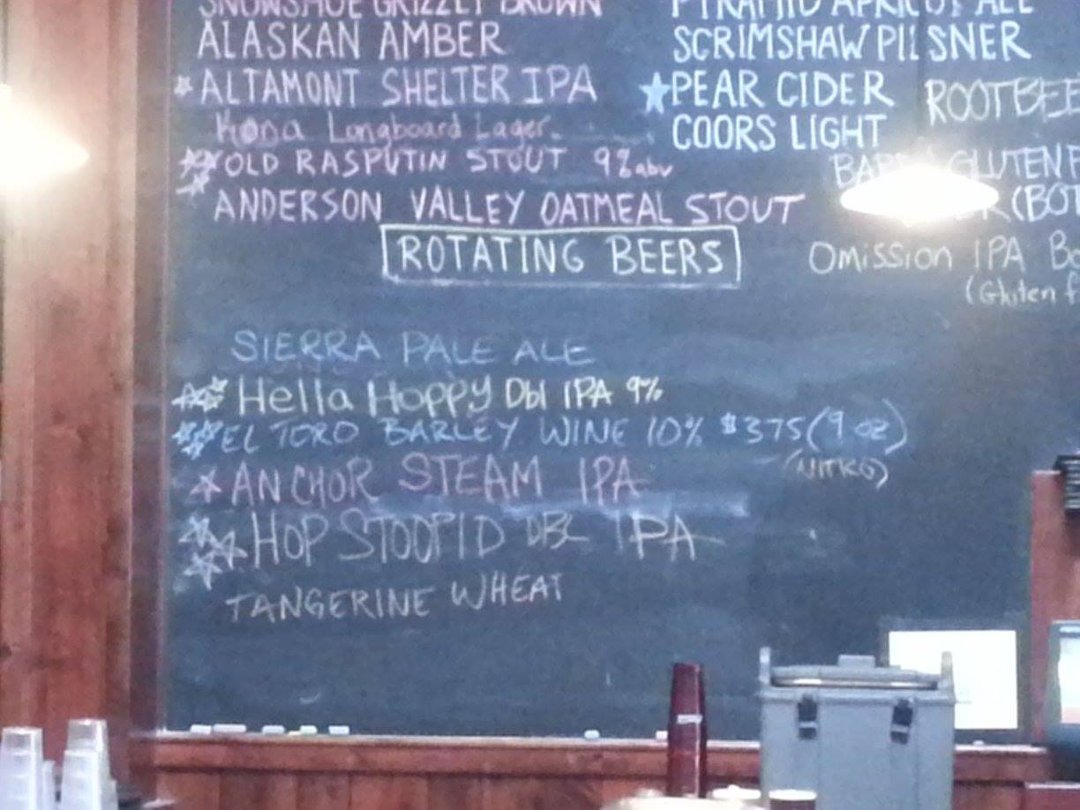 SNOWSHOE GRIZZLY BROWN
ALASKAN AMBER
ALTAMONT SHELTER IPA
Kona Longboard Lager
OLD RASPUTIN STOUT 9% abv
ANDERSON VALLEY OATMEAL STOUT
PYRAMID APRICOT ALE
SCRIMSHAW PILSNER
PEAR CIDER
COORS LIGHT
GLUTEN
Omission IPA
(Gluten
ROTATING BEERS
SIERRA PALE ALE
Hella Hoppy Dbl IPA 9%
EL TORO BARLEY WINE 10% $375 (9 oz)
(NITRO)
ANCHOR STEAM IPA
HOP STOOPID DBL IPA
TANGERINE WHEAT